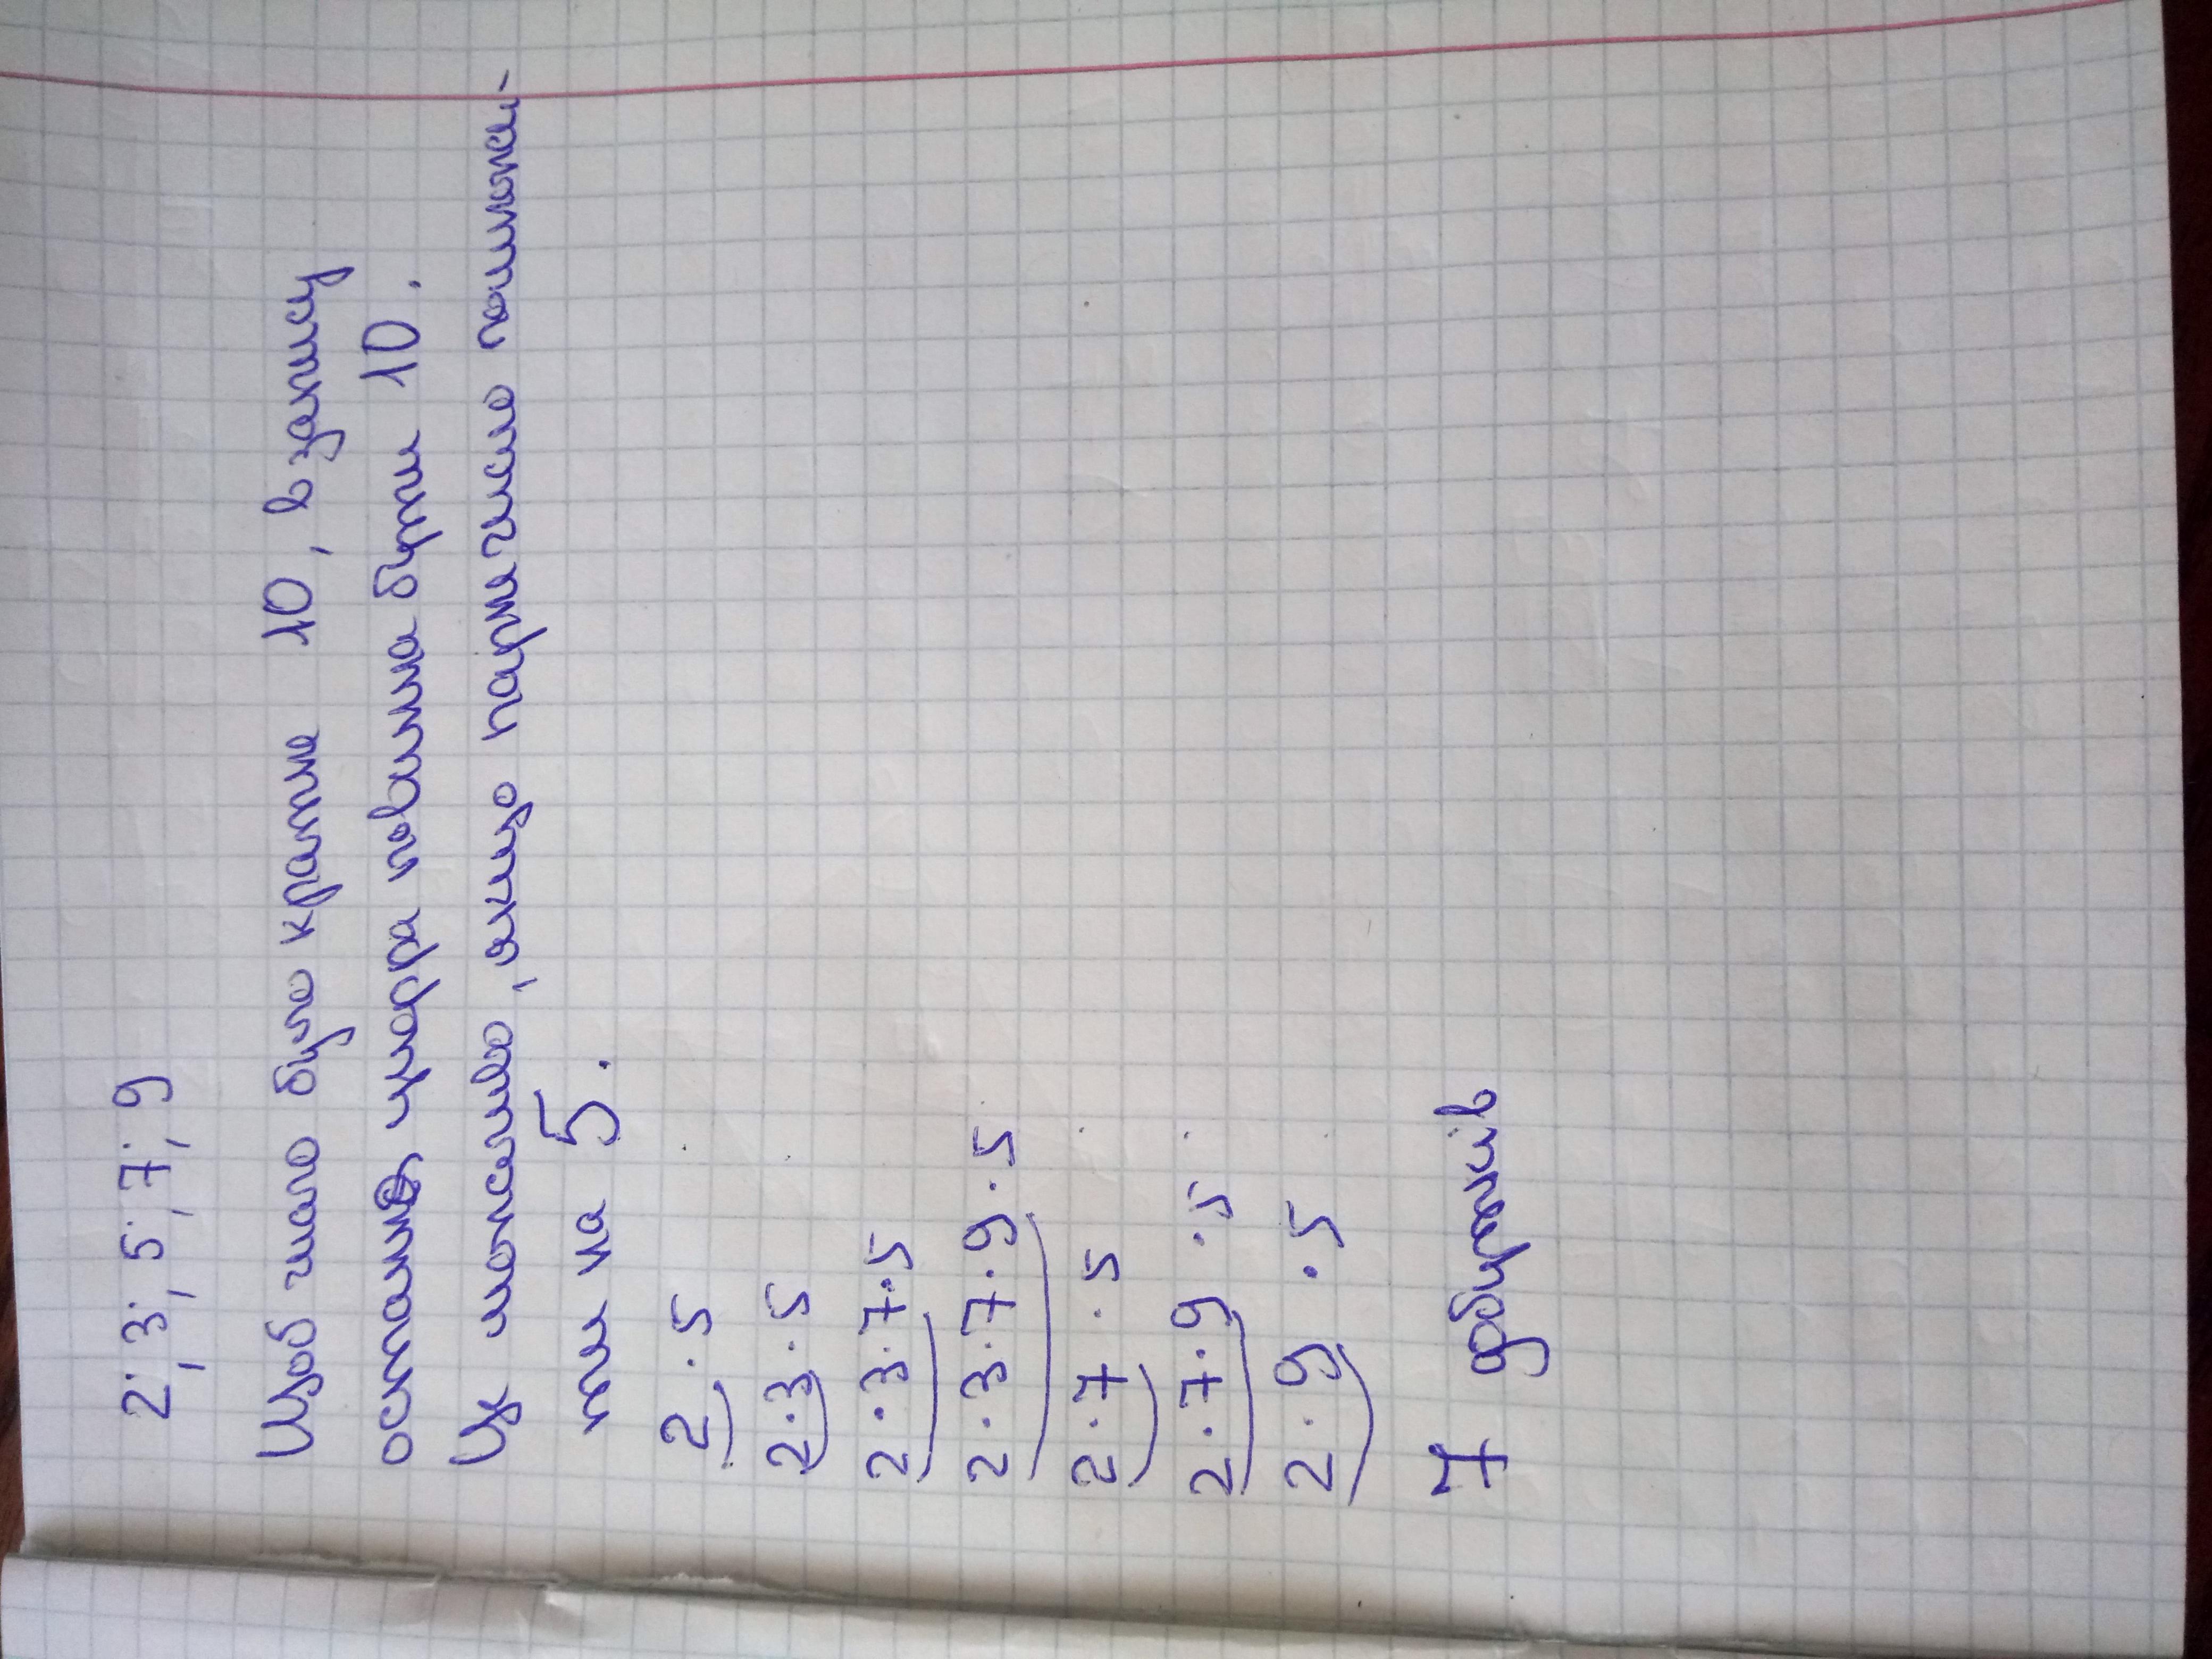 2; 3; 5; 7; 9
Щоб число було кратне 10, в запису
остання цифра повинна бути 10.
Це можливо, якщо парне число помножи-
ти на 5.
2 · 5
2 · 3 · 5
2 · 3 · 7 · 5
2 · 3 · 7 · 9 · 5
2 · 7 · 5
2 · 7 · 9 · 5
2 · 9 · 5
7 добутків